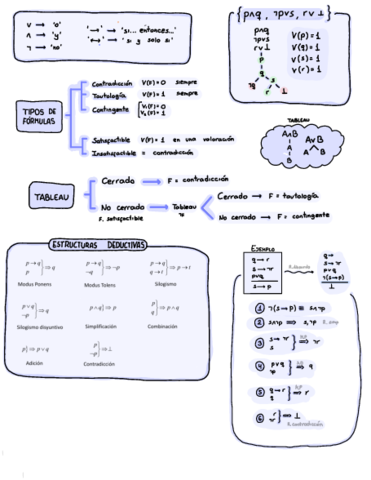 ∨ → 'o'
∧ → 'y'
¬ → 'no'
'→' → 'si... entonces...'
'↔' → 'si y solo si'
{ p∧q , ¬p∨s , r∨⊥ }
p∧q
¬p∨s
r∨⊥
p
q
¬p s
r ⊥
V(p)=1
V(q)=1
V(s)=1
V(r)=1
TIPOS DE FÓRMULAS
Contradicción V(F)=0 siempre
Tautología V(F)=1 siempre
Contingente V₁(F)=0
V₂(F)=1
Satisfactible V(F)=1 en una valoración
Insatisfactible = contradicción
TABLEAU
A∧B
A
B
A∨B
A B
TABLEAU
Cerrado → F = contradicción
No cerrado → Tableau
F. satisfactible
Cerrado → F = tautología
No cerrado → F = contingente
ESTRUCTURAS DEDUCTIVAS
p → q
p } ⇒ q
Modus Ponens
p → q
¬q } ⇒ ¬p
Modus Tolens
p → q
q → r } ⇒ p → r
Silogismo
p ∨ q
¬p } ⇒ q
Silogismo disyuntivo
p ∧ q} ⇒ p
Simplificación
p
q } ⇒ p ∧ q
Combinación
p} ⇒ p ∨ q
Adición
p
¬p } ⇒ ⊥
Contradicción
EJEMPLO
q → r
p∨q
s → p
q →
p∨q
¬(s→p)
⊥
① ¬(s→p) ≡ s∧¬p
② s∧¬p ⇒ s,¬p
③ s
④ p∨q
¬p } ⇒ q
⑤ q→r
q } ⇒ r
⑥ ⇒ ⊥